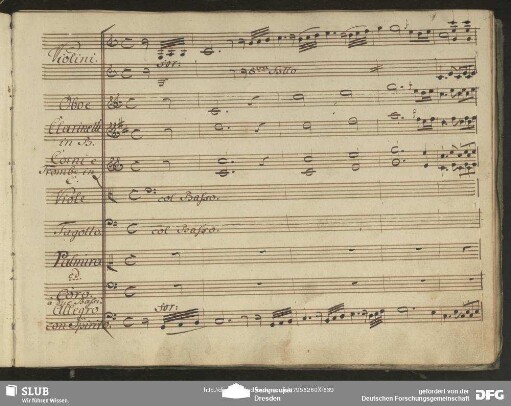 Violini.
for:
8va Sotto
Oboe
Clarinetti
in B.
Corni e
Trombe in
C.
Viole
col Basso.
Fagotto
col Basso.
Palmira
ed
Coro.
Allegro
con Spirito
for:
SLUB
Wir führen Wissen.
Dresden
gefördert von der
Deutschen Forschungsgemeinschaft
DFG